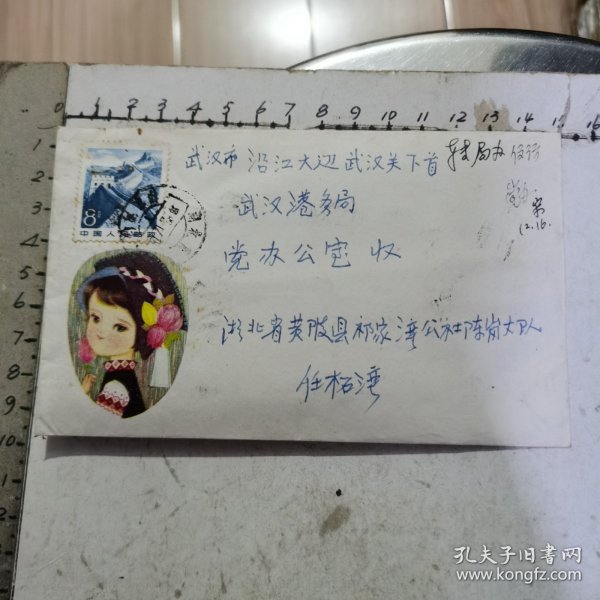 0 1 2 3 4 5 6 7 8 9 10 11 12 13 14 15 16
1
2
3
4
5
6
7
8
9
10
11
12
8
中国人民邮政
武汉市 沿江大边 武汉关下首
转局办信访
武汉港务局
12.16.
党办公室 收
湖北省黄陂县祁家湾公社陈岗大队
任柘湾
孔夫子旧书网
www.kongfz.com